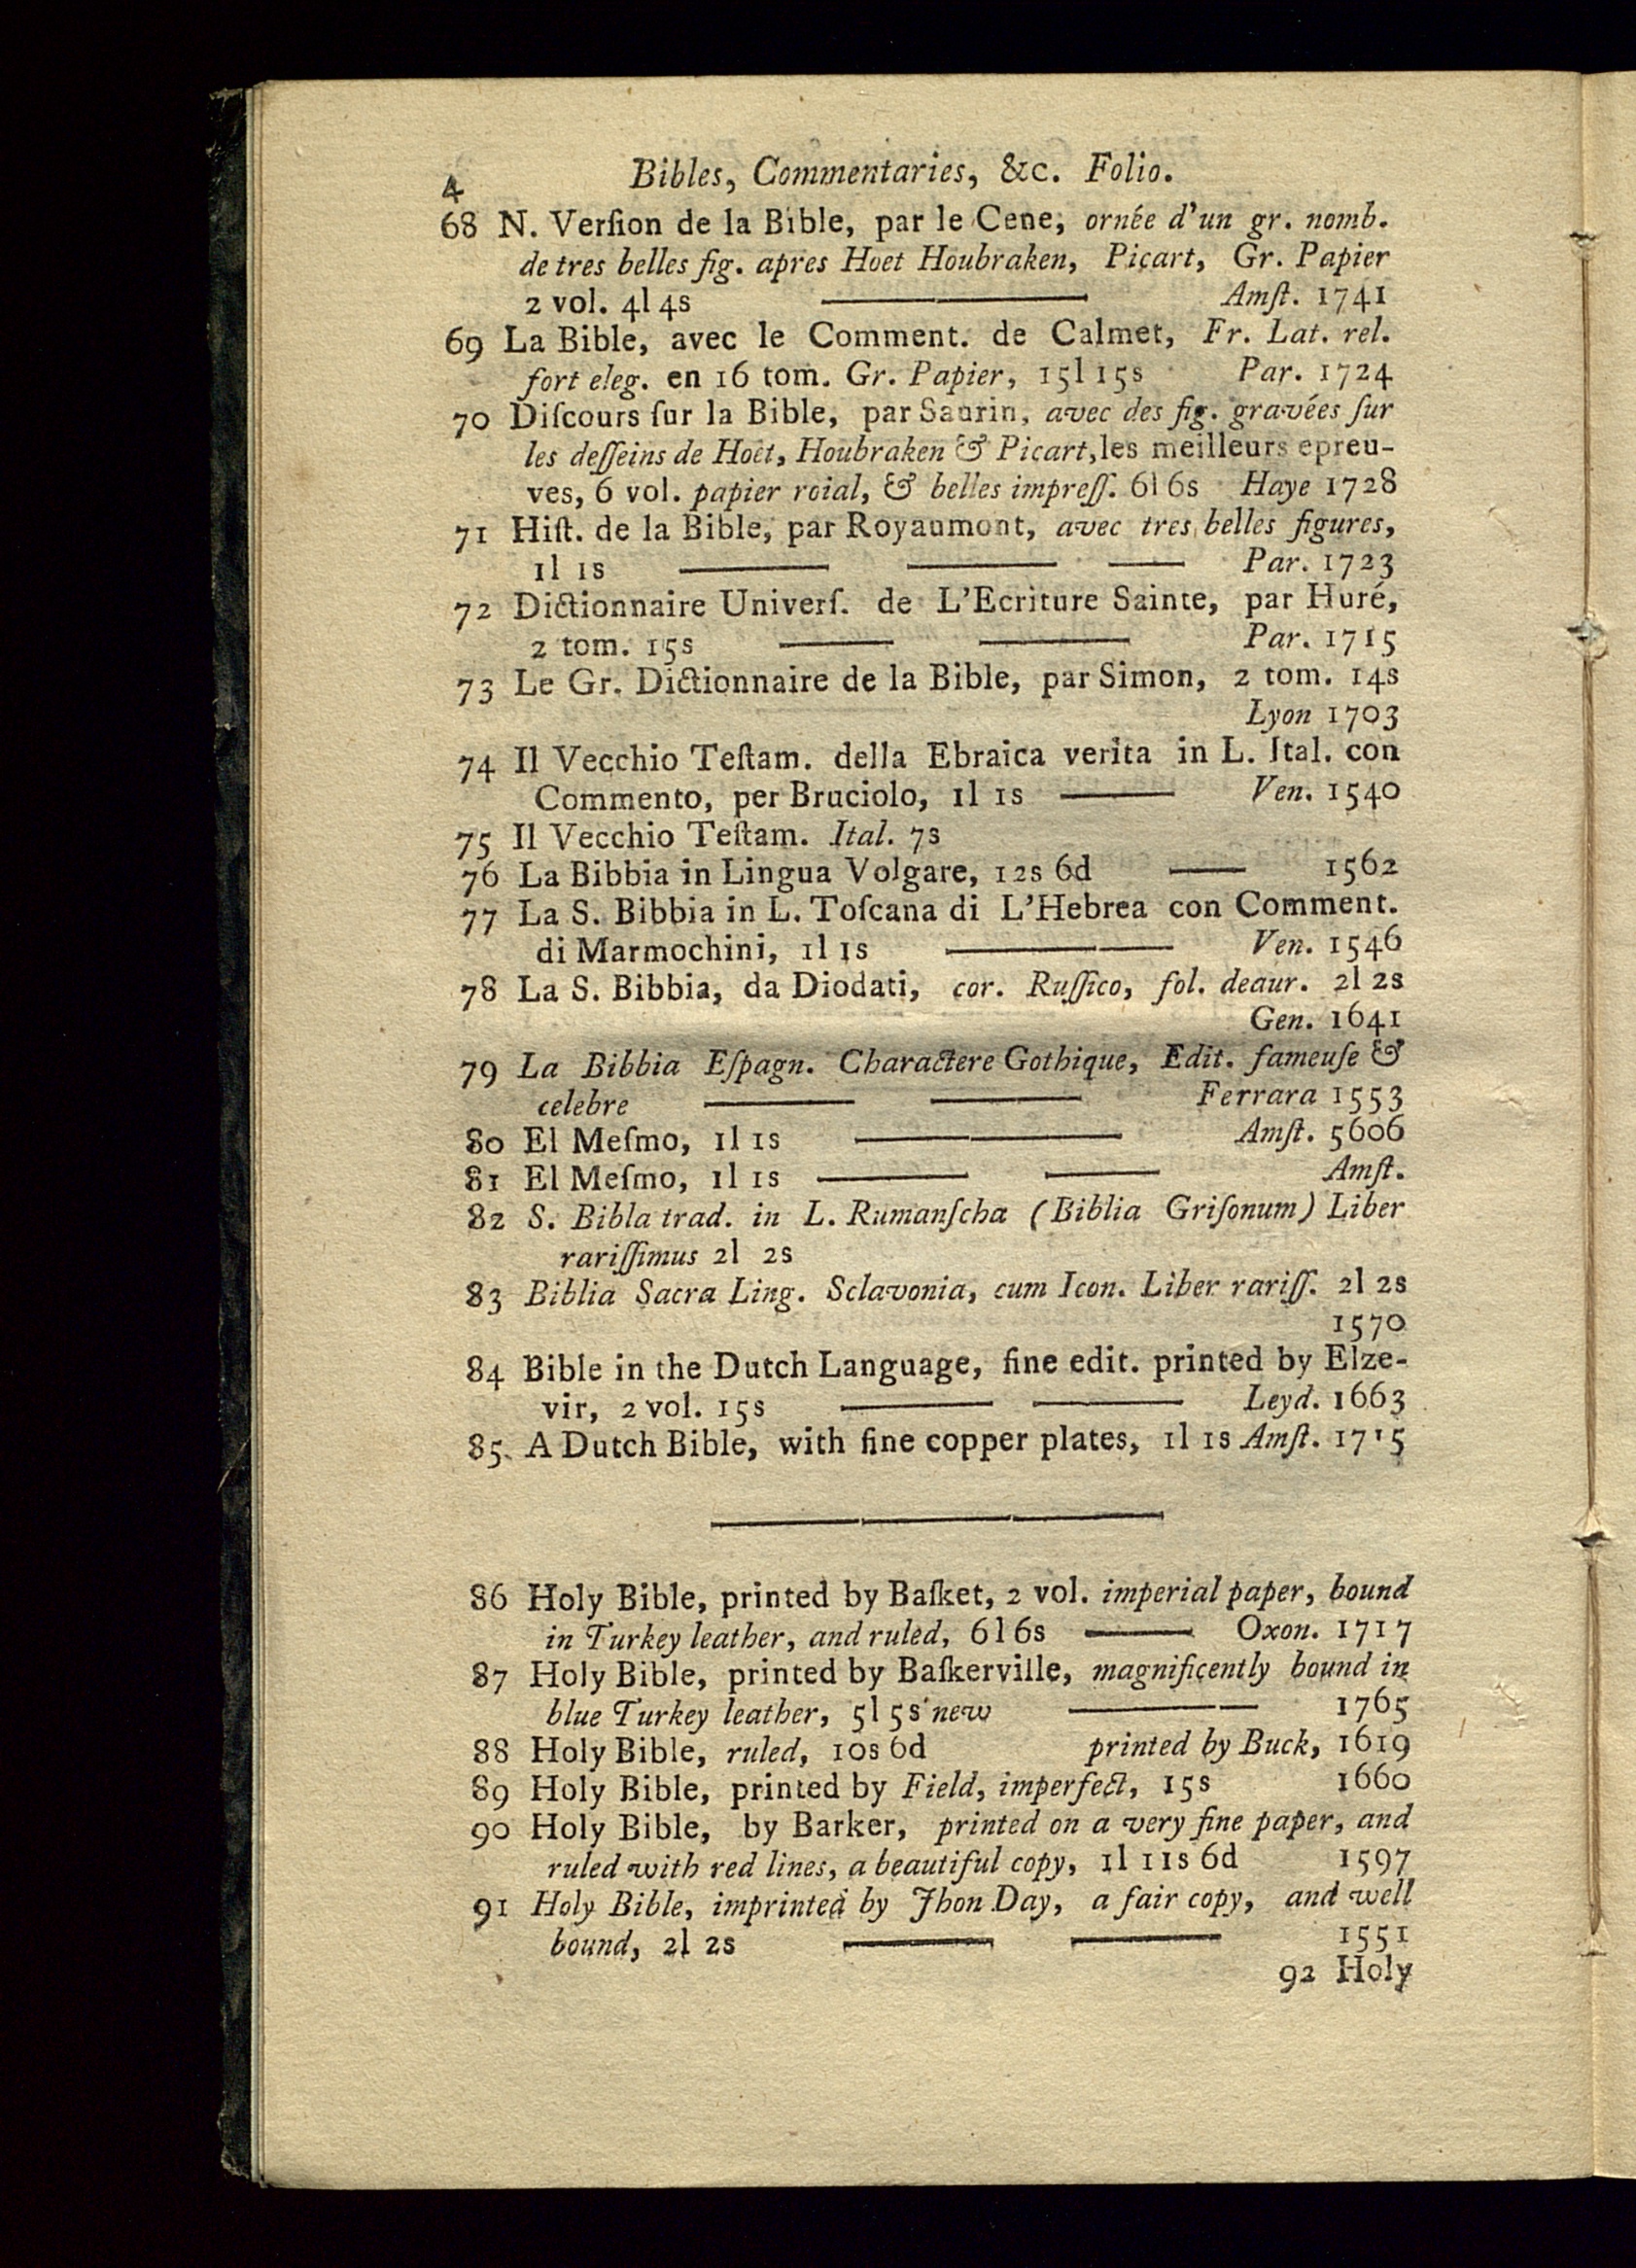 4
Bibles, Commentaries, &c. Folio.
68 N. Verſion de la Bible, par le Cene, ornée d'un gr. nomb.
de tres belles fig. apres Hoet Houbraken, Picart, Gr. Papier
2 vol. 4l 4s ——— Amſt. 1741
69 La Bible, avec le Comment. de Calmet, Fr. Lat. rel.
fort eleg. en 16 tom. Gr. Papier, 15l 15s Par. 1724
70 Diſcours ſur la Bible, par Saurin, avec des fig. gravées ſur
les deſſeins de Hoet, Houbraken & Picart, les meilleurs epreu-
ves, 6 vol. papier roial, & belles impreſſ. 6l 6s Haye 1728
71 Hiſt. de la Bible, par Royaumont, avec tres belles figures,
1l 1s —— —— — Par. 1723
72 Dictionnaire Univerſ. de L'Ecriture Sainte, par Huré,
2 tom. 15s —— —— Par. 1715
73 Le Gr. Dictionnaire de la Bible, par Simon, 2 tom. 14s
Lyon 1703
74 Il Vecchio Teſtam. della Ebraica verita in L. Ital. con
Commento, per Bruciolo, 1l 1s —— Ven. 1540
75 Il Vecchio Teſtam. Ital. 7s
76 La Bibbia in Lingua Volgare, 12s 6d — 1562
77 La S. Bibbia in L. Toſcana di L'Hebrea con Comment.
di Marmochini, 1l 1s ——— Ven. 1546
78 La S. Bibbia, da Diodati, cor. Ruſſico, fol. deaur. 2l 2s
Gen. 1641
79 La Bibbia Eſpagn. Charactere Gothique, Edit. fameuſe &
celebre —— —— Ferrara 1553
80 El Meſmo, 1l 1s ——— Amſt. 5606
81 El Meſmo, 1l 1s —— —— Amſt.
82 S. Bibla trad. in L. Rumanſcha (Biblia Griſonum) Liber
rariſſimus 2l 2s
83 Biblia Sacra Ling. Sclavonia, cum Icon. Liber rariſſ. 2l 2s
1570
84 Bible in the Dutch Language, fine edit. printed by Elze-
vir, 2 vol. 15s —— —— Leyd. 1663
85 A Dutch Bible, with fine copper plates, 1l 1s Amſt. 1715
86 Holy Bible, printed by Baſket, 2 vol. imperial paper, bound
in Turkey leather, and ruled, 6l 6s —— Oxon. 1717
87 Holy Bible, printed by Baſkerville, magnificently bound in
blue Turkey leather, 5l 5s new ——— 1765
88 Holy Bible, ruled, 10s 6d printed by Buck, 1619
89 Holy Bible, printed by Field, imperfect, 15s 1660
90 Holy Bible, by Barker, printed on a very fine paper, and
ruled with red lines, a beautiful copy, 1l 11s 6d 1597
91 Holy Bible, imprinted by Jhon Day, a fair copy, and well
bound, 2l 2s —— —— 1551
92 Holy